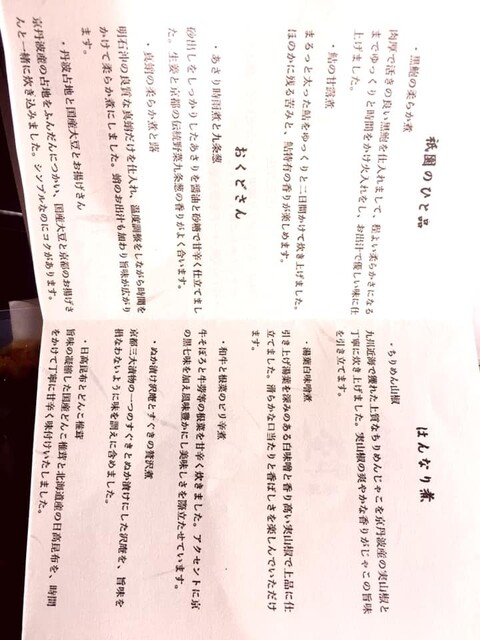 祇園のひと品
・黒鮑の柔らか煮
肉厚で活きの良い黒鮑を仕入れまして、程よい柔らかさになる
までゆっくりと時間をかけ火入れをし、お出汁で優しい味に仕
上げました。
・鮎の甘露煮
まるっと太った鮎をゆっくりと二日間かけて炊き上げました。
ほのかに残る苦みと、鮎特有の香りが楽しめます。
おくどさん
・あさり時雨煮と九条葱
砂出しをしっかりしたあさりを醤油と砂糖で甘辛く仕立てまし
た。生姜と京都の伝統野菜九条葱の香りがよく合います。
・真蛸の柔らか煮と蕗
明石沖の良質な真蛸だけを仕入れ、温度調整をしながら時間を
かけて柔らか煮にしました。蛸のお出汁も加わり旨味が広がり
ます。
・丹波占地と国産大豆とお揚げさん
京丹波産の占地をふんだんにつかい、国産大豆と京都のお揚げさ
んと一緒に炊き込みました。シンプルなのにコクがあります。
はんなり煮
・ちりめん山椒
九州近海で獲れた上質なちりめんじゃこを京丹波産の実山椒と
丁寧に炊き上げました。実山椒の爽やかな香りがじゃこの旨味
を引き立てます。
・湯葉白味噌煮
引き上げ湯葉を深みのある白味噌と香り高い実山椒で上品に仕
立てました。滑らかな口当たりと香ばしさを楽しんでいただけ
ます。
・和牛と根菜のピリ辛煮
牛そぼろと牛蒡等の根菜を甘辛く炊きました。アクセントに京
の黒七味を加え風味豊かにし美味しさを際立たせています。
・ぬか漬け沢庵とすぐきの贅沢煮
京都三大漬物の一つのすぐきとぬか漬けにした沢庵を、旨味を
損なわないように味を調えに含めました。
・日高昆布とどんこ椎茸
旨味の凝縮した国産どんこ椎茸と北海道産の日高昆布を、時間
をかけて丁寧に甘辛く味付けいたしました。